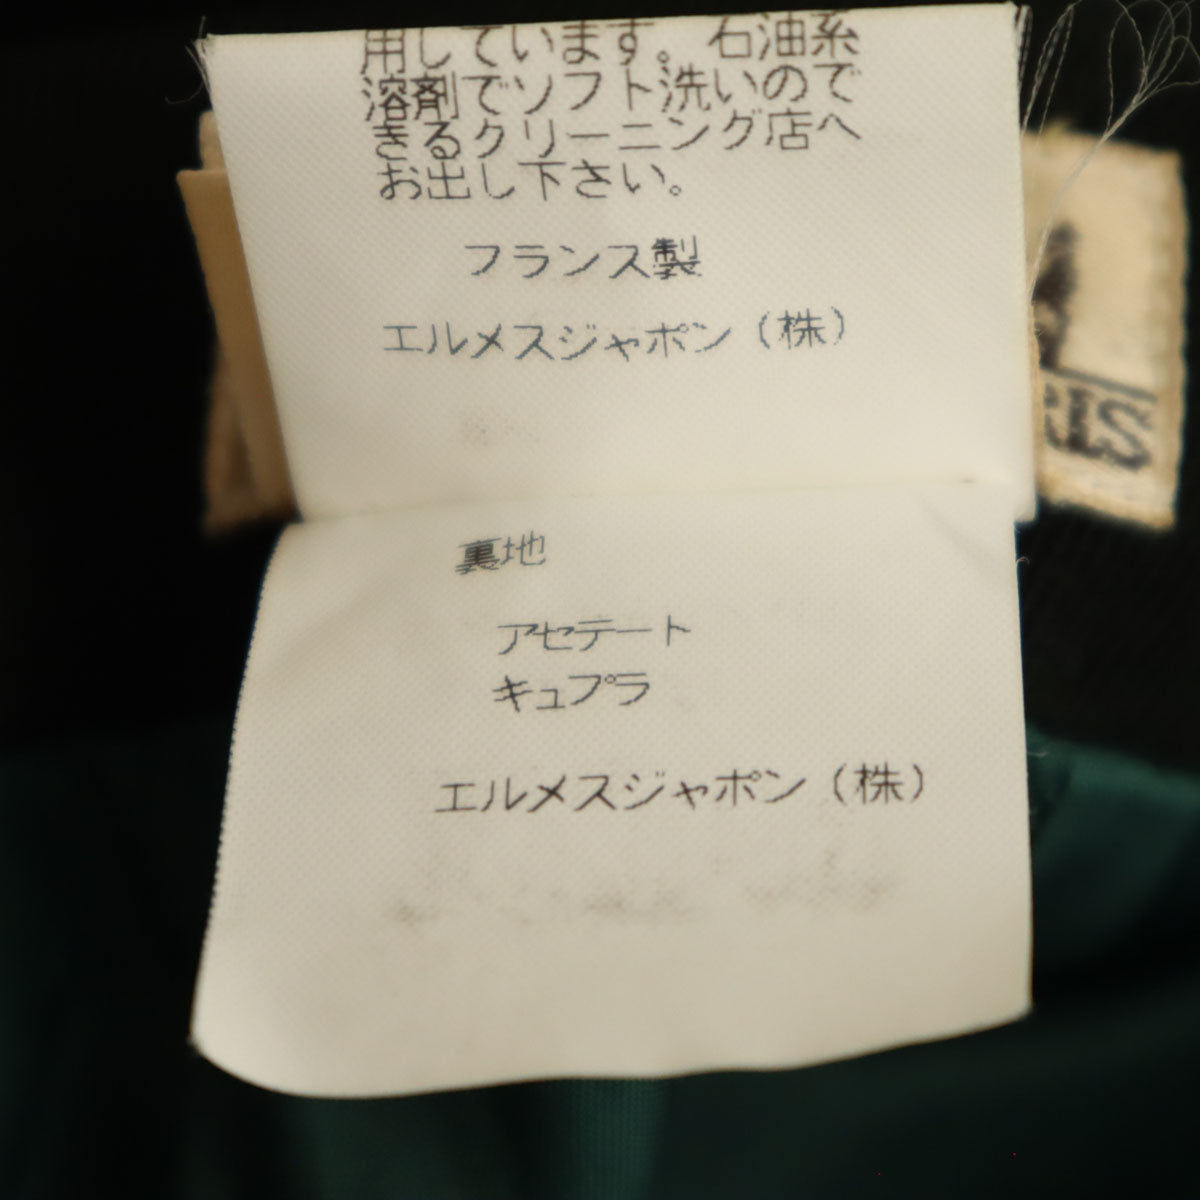 用しています。石油系
溶剤でソフト洗いので
きるクリーニング店へ
お出し下さい。
フランス製
エルメスジャポン（株）
裏地
アセテート
キュプラ
エルメスジャポン（株）